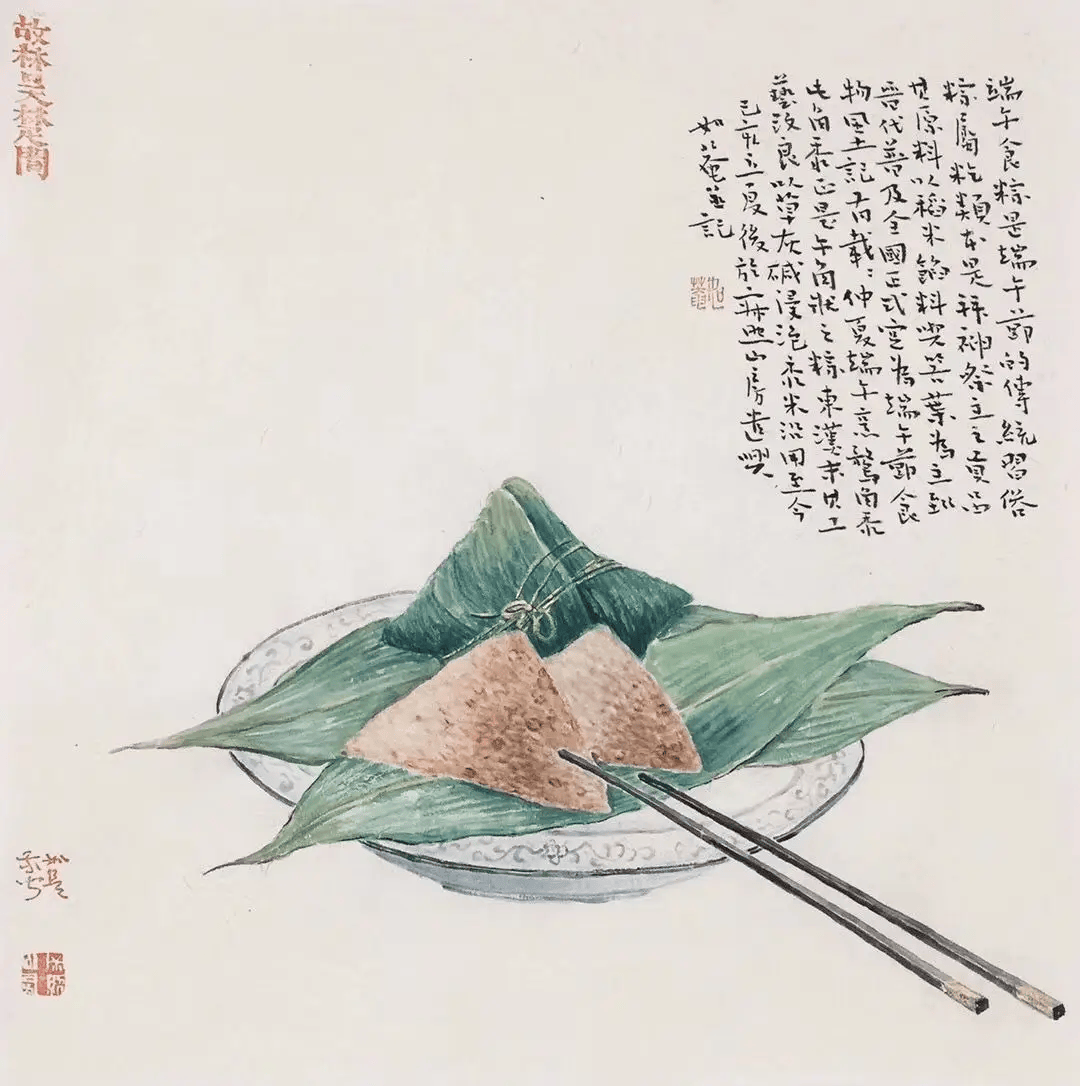 端午食粽是端午節的傳統習俗
粽屬籺類本是拜神祭主之貢品
其原料以稻米餡料與箬葉為主到
晉代普及全國正式定為端午節食
物風土記有載：仲夏端午烹鶩角黍
此角黍正是午角狀之粽東漢末其工
藝改良以草灰碱浸泡黍米沿用至今
己亥立夏後於山房遣興
如庵並記